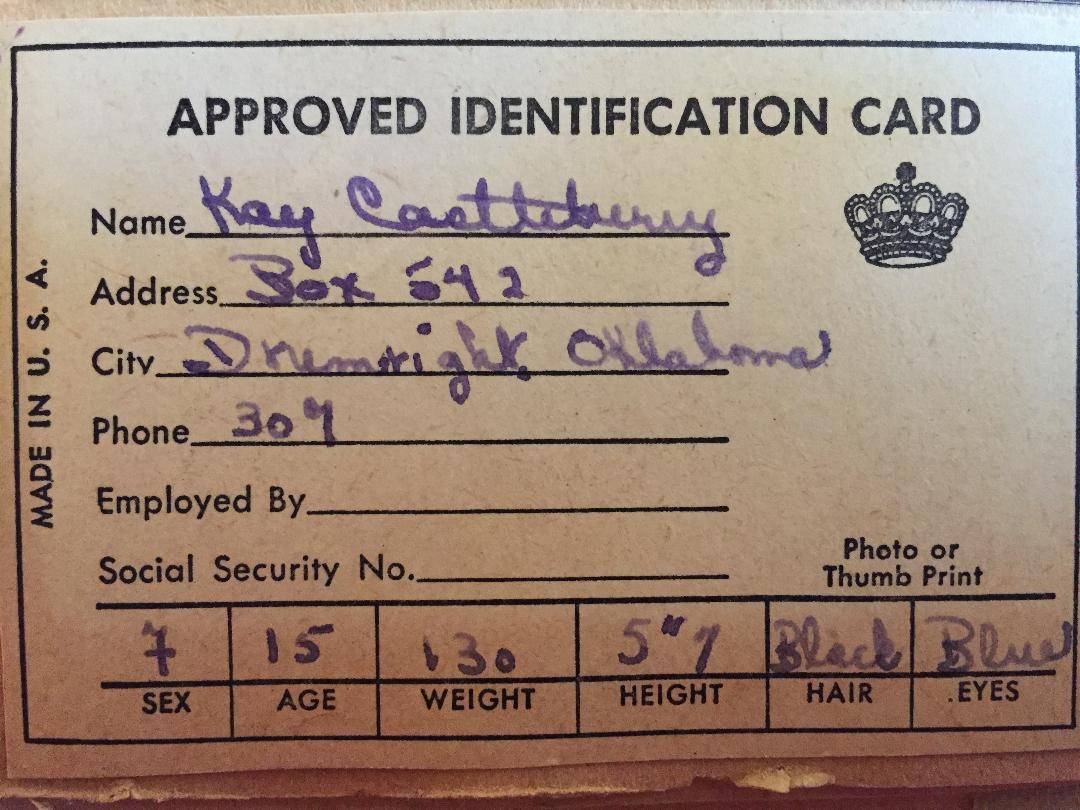 APPROVED IDENTIFICATION CARD
Name Kay Castleberry
Address Box 542
City Drumright, Oklahoma
Phone 307
Employed By
Social Security No.
Photo or
Thumb Print
MADE IN U. S. A.
7 15 130 5"7 Black Blue
SEX AGE WEIGHT HEIGHT HAIR EYES